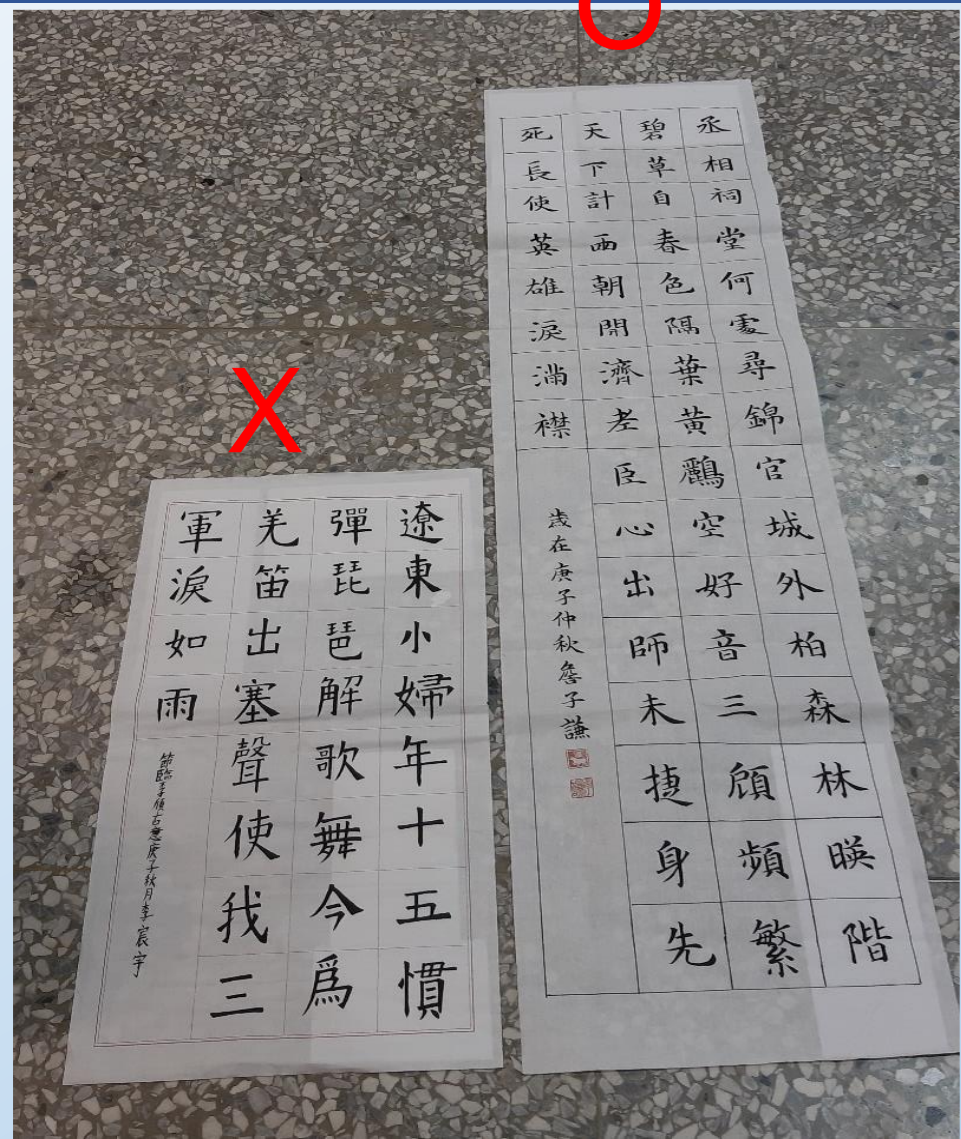 O
丞相祠堂何處尋錦官城外柏森林暎階
碧草自春色隔葉黃鸝空好音三顧頻繁
天下計両朝開濟老臣心出師未捷身先
死長使英雄淚滿襟
歲在庚子仲秋詹子謙
X
遼東小婦年十五慣
彈琵琶解歌舞今爲
羌笛出塞聲使我三
軍淚如雨
節臨李頎古意庚子秋月李宸宇